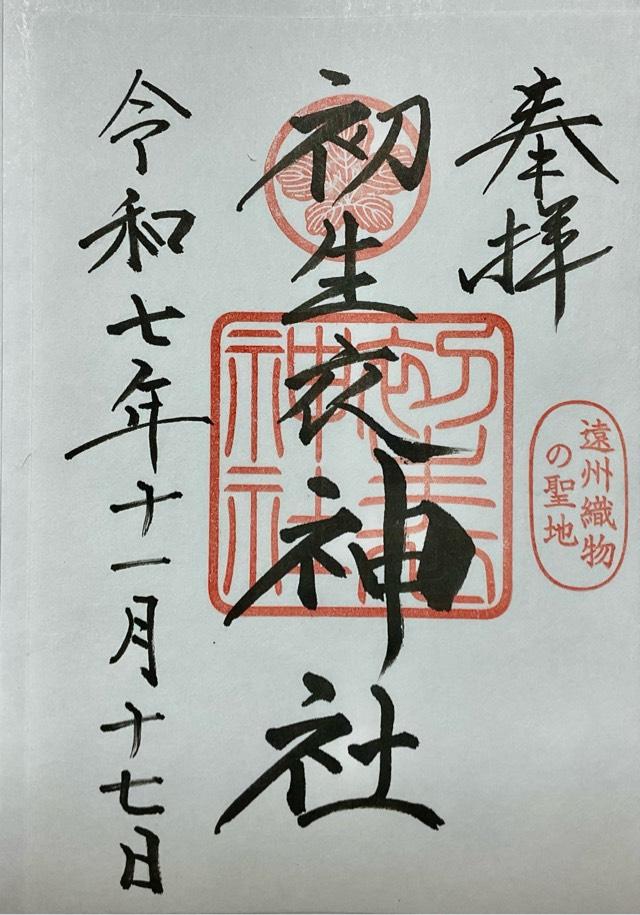 奉拝
遠州織物
の聖地
初生衣神社
初生衣神社
令和七年十一月十七日